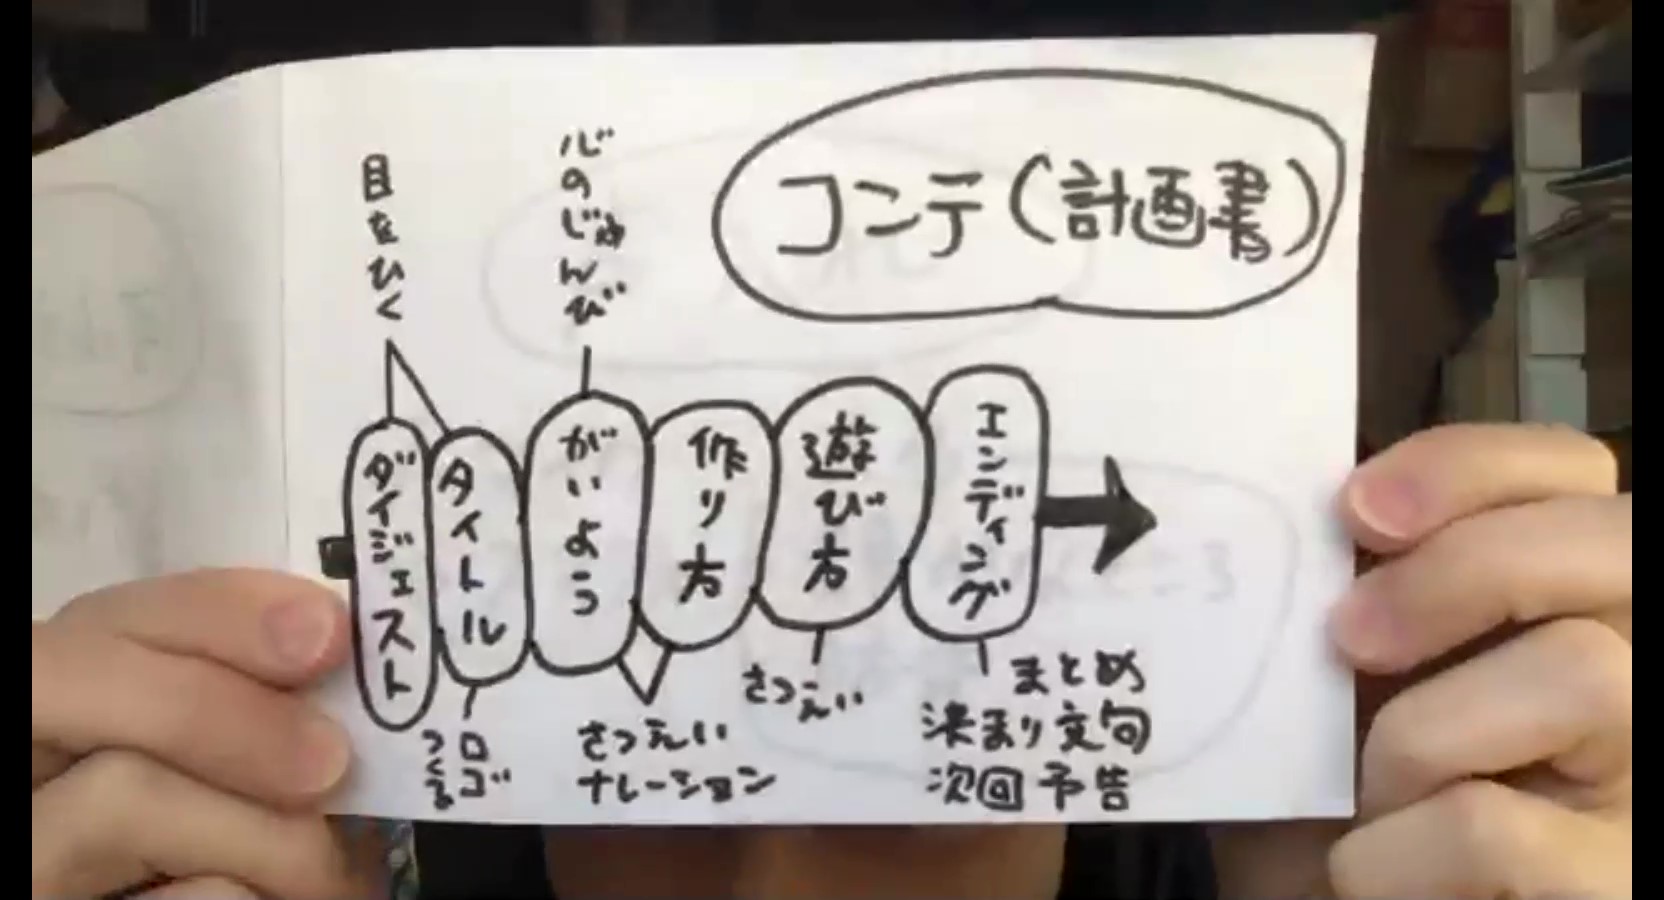 コンテ(計画書)
目をひく
心のじゅんび
ダイジェスト
タイトル
がいよう
作り方
遊び方
エンディング
ロゴ
つくる
さつえい
ナレーション
さつえい
まとめ
決まり文句
次回予告